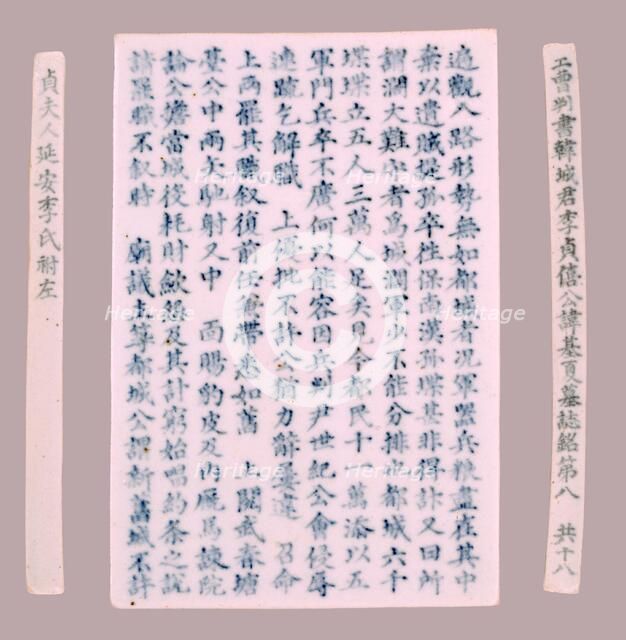 工曹判書韓城君李貞僖公諱基夏墓誌銘第八 共十八
觀八路形勢無如都城者況軍器兵粮盡在其中
棄以遺賊 孤卒 保南漢孤堞甚非得計又曰所
謂濶大難守者爲城濶軍少不能分排都城六千
堞堞立五人三萬人足矣見今都民十 萬添以五
軍門兵卒不廣何以能容因兵判尹世紀公會侵辱
連䟽乞解職 上優批不許公猶力辭屢違 召命
上兩罷其職敘復前任兼帶悉如舊 閱武春塘
臺公中兩矢馳射又中 面賜豹皮及廐馬諫院
論公擔當城役耗財歛怨及其計窮始唱約条之說
請罷職不敘時 廟議 都城公謂新舊城不許
貞夫人延安李氏祔左
Heritage Heritage
Heritage Heritage Heritage Heritage
Heritage Heritage